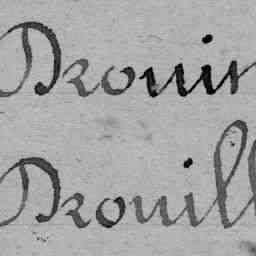 Drouin
Drouill